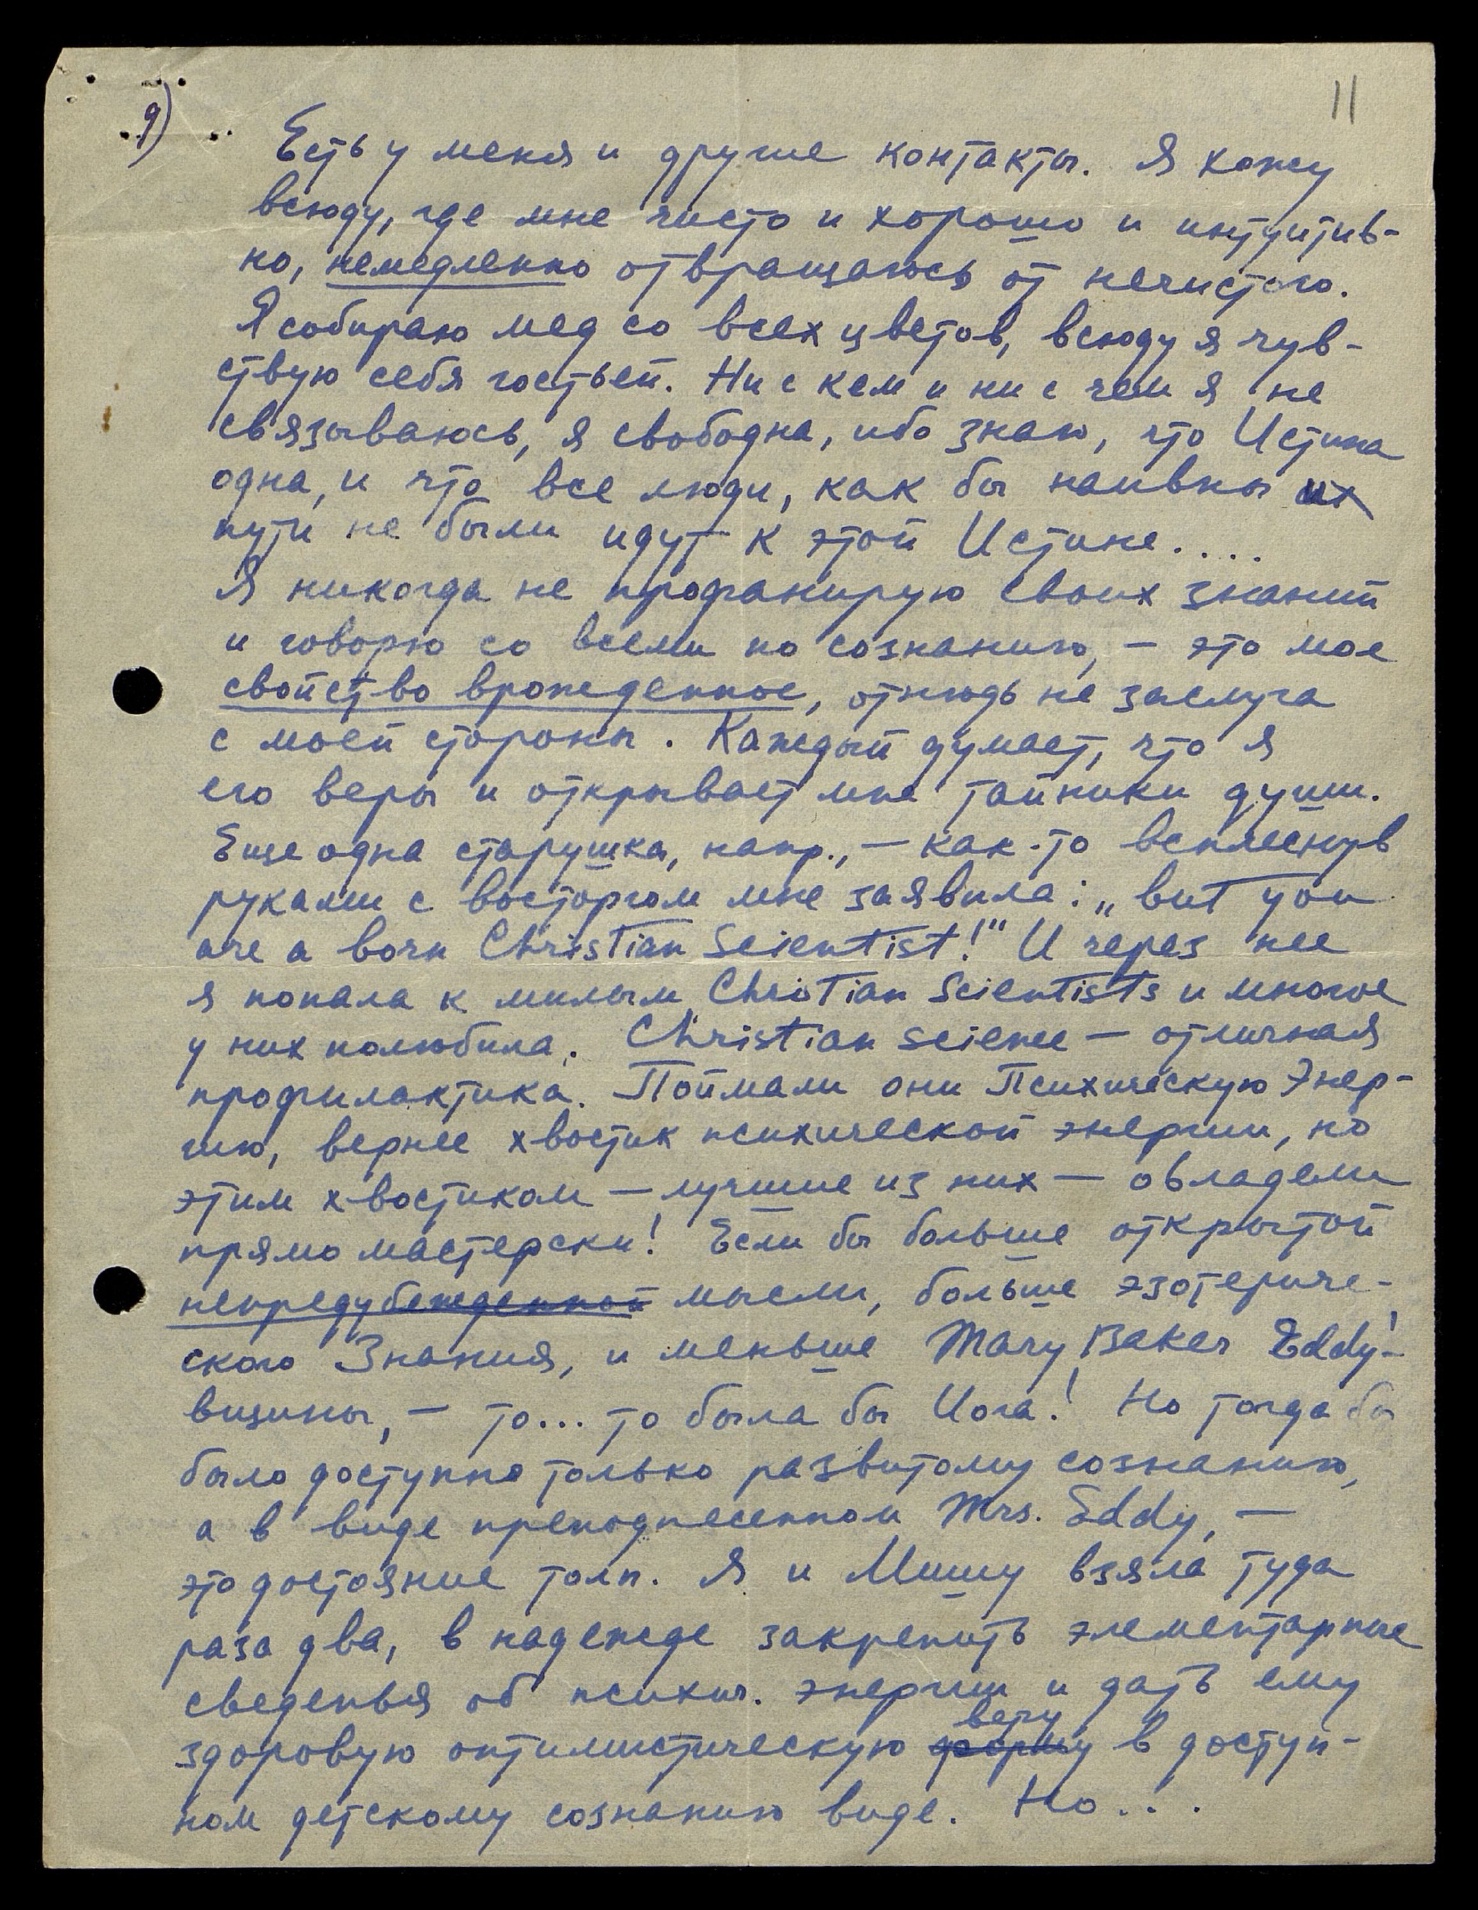 11
9)
Есть у меня и другие контакты. Я хожу
всюду, где мне чисто и хорошо и интуитив-
но, немедленно отвращаюсь от нечистого.
Я собираю мед со всех цветов, всюду я чув-
ствую себя гостьей. Ни с кем и ни с чем я не
связываюсь, я свободна, ибо знаю, что Истина
одна, и что все люди, как бы наивны их
пути не были идут к этой Истине....
Я никогда не профанирую своих знаний
и говорю со всеми по сознанию, – это мое
свойство врожденное, отнюдь не заслуга
с моей стороны. Каждый думает, что я
его веры и открывает мне тайники души.
Еще одна старушка, напр., – как-то всплеснув
руками с восторгом мне заявила: „but you
are a born Christian Scientist!" И через нее
я попала к милым Christian Scientists и многое
у них полюбила. Christian Science – отличная
профилактика. Поймали они Психическую Энер-
гию, вернее хвостик психической энергии, но
этим хвостиком – лучшие из них – овладели
прямо мастерски! Если бы больше открытой
непредубежденной мысли, больше эзотериче-
ского Знания, и меньше Mary Baker Eddy'-
вщины, – то... то была бы Иога! Но тогда бы
было доступно только развитому сознанию,
а в виде преподнесенном Mrs. Eddy, –
это достояние толп. Я и Мишу взяла туда
раза два, в надежде закрепить элементарные
сведенья об психич. энергии и дать ему
здоровую оптимистическую форму веру в доступ-
ном детскому сознанию виде. Но...